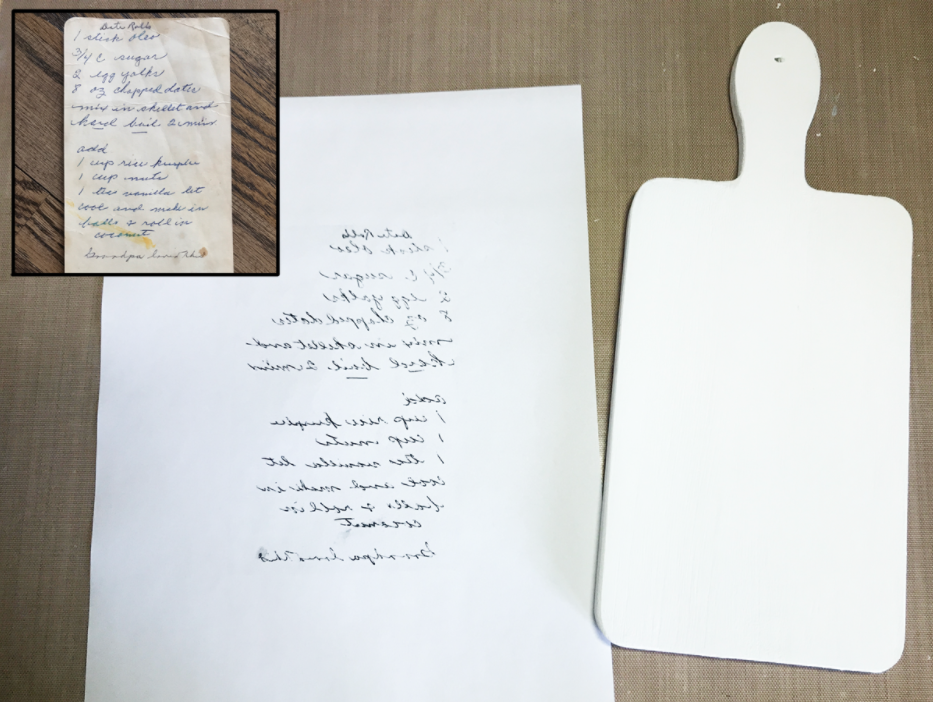 Date Rolls
1 stick oleo
3/4 C sugar
2 egg yolks
8 oz chopped dates
mix in skillet and
hard boil 2 mins
add
1 cup rice krispie
1 cup nuts
1 tea vanilla let
cool and make in
balls & roll in
coconut
Grandpa loves this
Date Rolls
1 stick oleo
3/4 C sugar
2 egg yolks
8 oz chopped dates
mix in skillet and
hard boil 2 mins
add
1 cup rice krispie
1 cup nuts
1 tea vanilla let
cool and make in
balls & roll in
coconut
Grandpa loves this